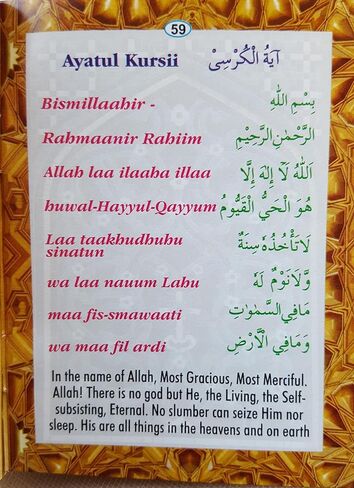 59
Ayatul Kursii آيَةُ الْكُرْسِىْ
Bismillaahir - بِسْمِ اللّٰهِ
Rahmaanir Rahiim الرَّحْمٰنِ الرَّحِيْمِ
Allah laa ilaaha illaa اَللّٰهُ لَآ إِلٰهَ إِلَّا
huwal-Hayyul-Qayyum هُوَ الْحَيُّ الْقَيُّومُ
Laa taakhudhuhu لَا تَأْخُذُهٗ سِنَةٌ
sinatun
wa laa nauum Lahu وَّلَا نَوْمٌ لَهٗ
maa fis-smawaati مَا فِي السَّمٰوٰتِ
wa maa fil ardi وَمَا فِي الْأَرْضِ
In the name of Allah, Most Gracious, Most Merciful.
Allah! There is no god but He, the Living, the Self-
subsisting, Eternal. No slumber can seize Him nor
sleep. His are all things in the heavens and on earth